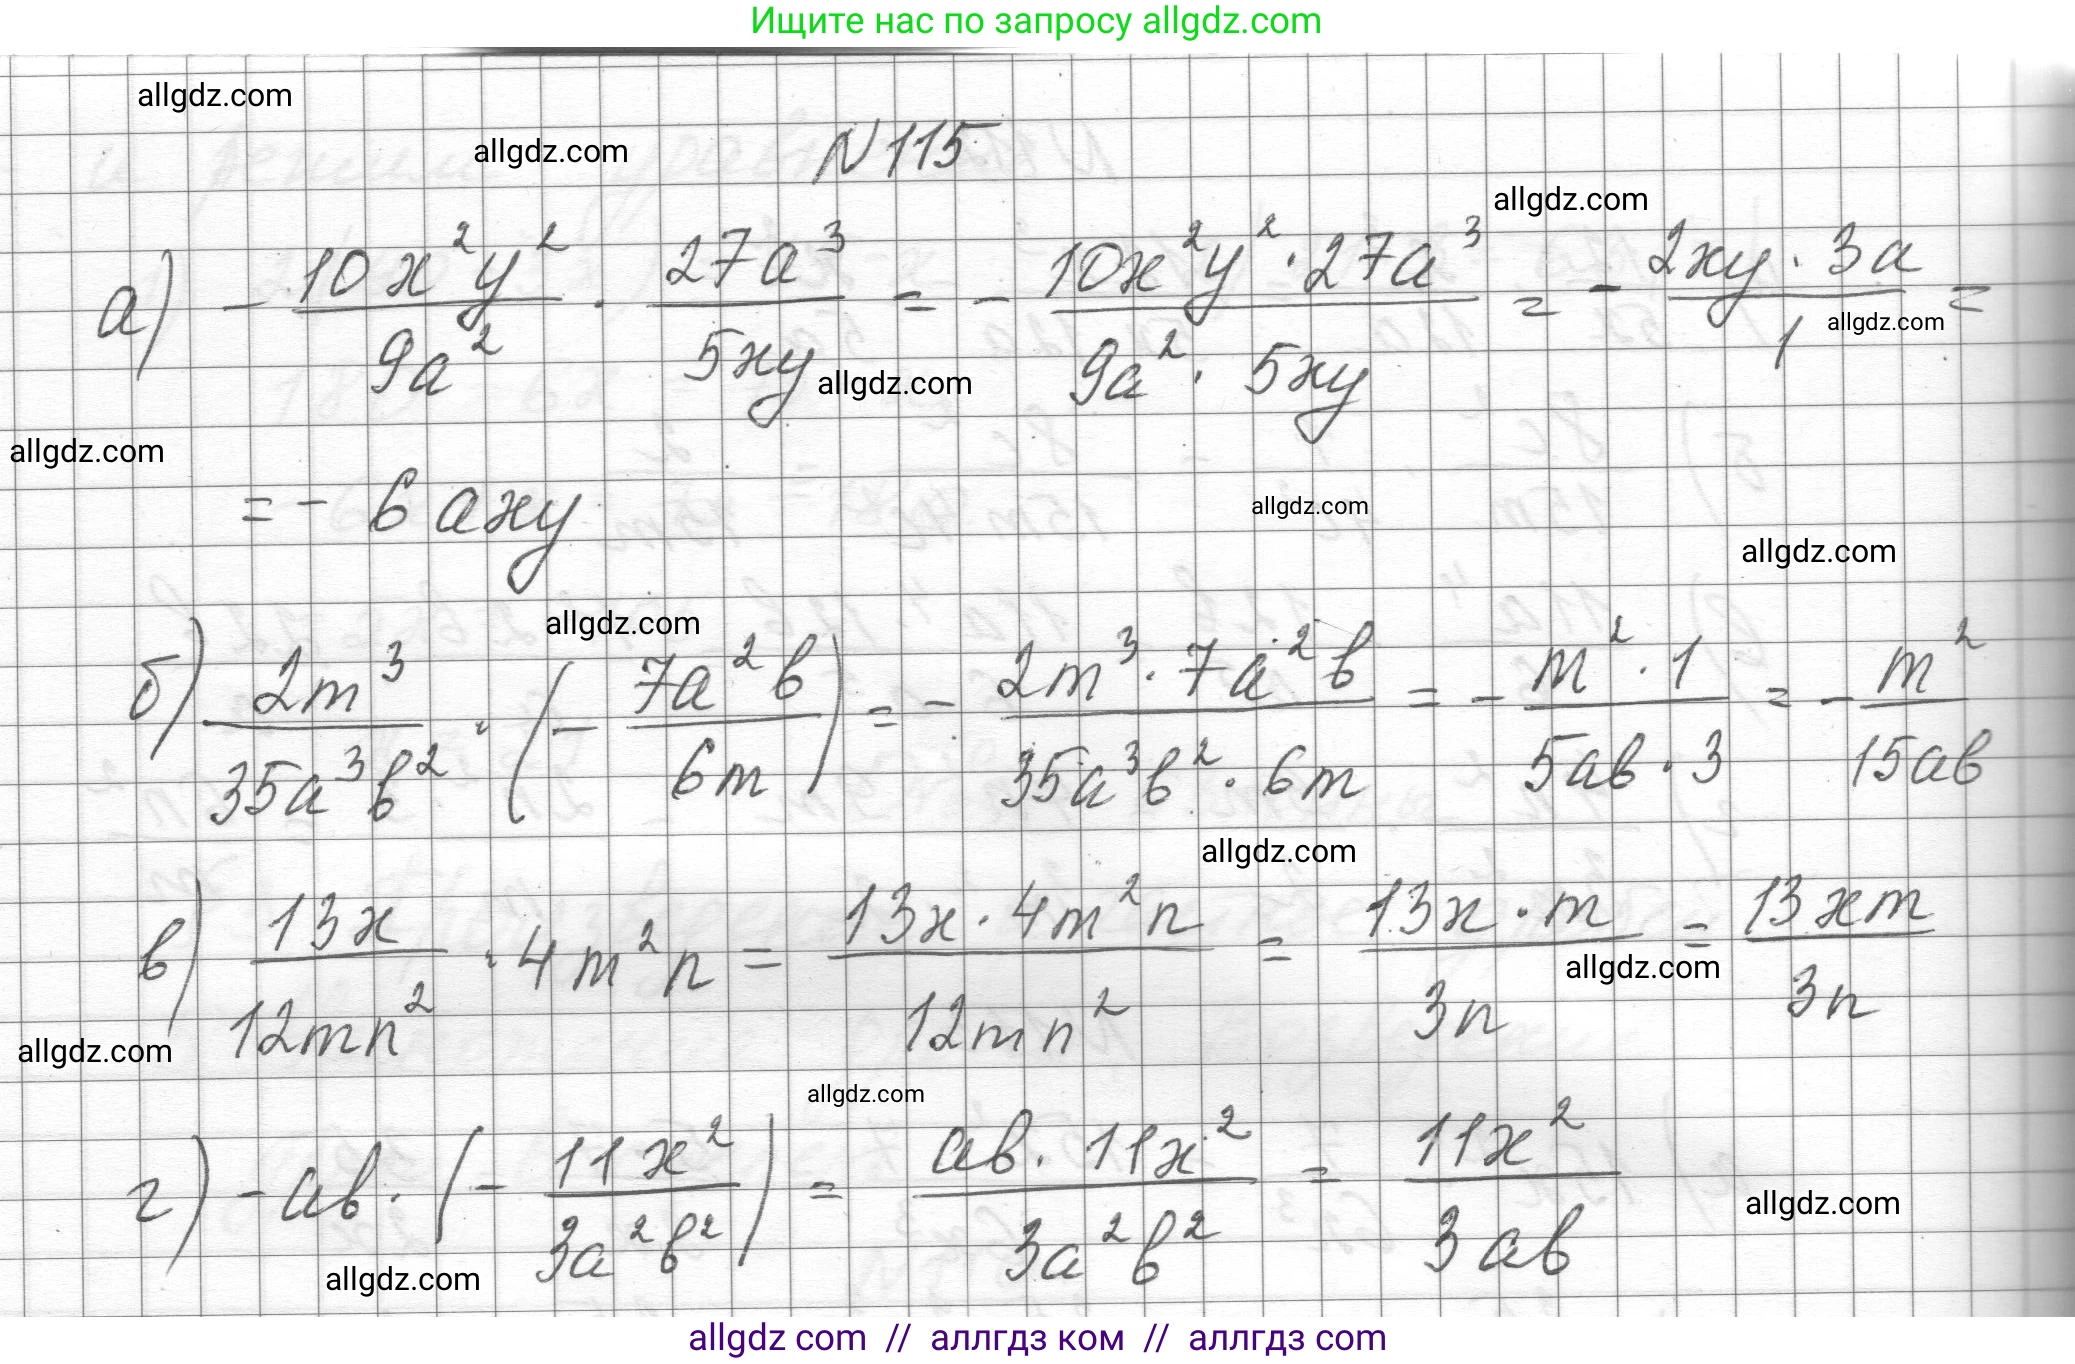 Ищите нас по запросу allgdz.com
allgdz.com
allgdz.com
N 115
allgdz.com
а) - 10x²y² / 9a² · 27a³ / 5xy = - 10x²y² · 27a³ / 9a² · 5xy = - 2xy · 3a / 1 =
allgdz.com
allgdz.com
allgdz.com
= - 6 axy
allgdz.com
allgdz.com
allgdz.com
б) 2m³ / 35a³b² · (- 7a²b / 6m) = - 2m³ · 7a²b / 35a³b² · 6m = - m² · 1 / 5ab · 3 = - m² / 15ab
allgdz.com
в) 13x / 12mn² · 4m²n = 13x · 4m²n / 12mn² = 13x · m / 3n = 13xm / 3n
allgdz.com
allgdz.com
allgdz.com
г) - ab · (- 11x² / 3a²b²) = ab · 11x² / 3a²b² = 11x² / 3ab
allgdz.com
allgdz.com
allgdz com // аллгдз ком // аллгдз com